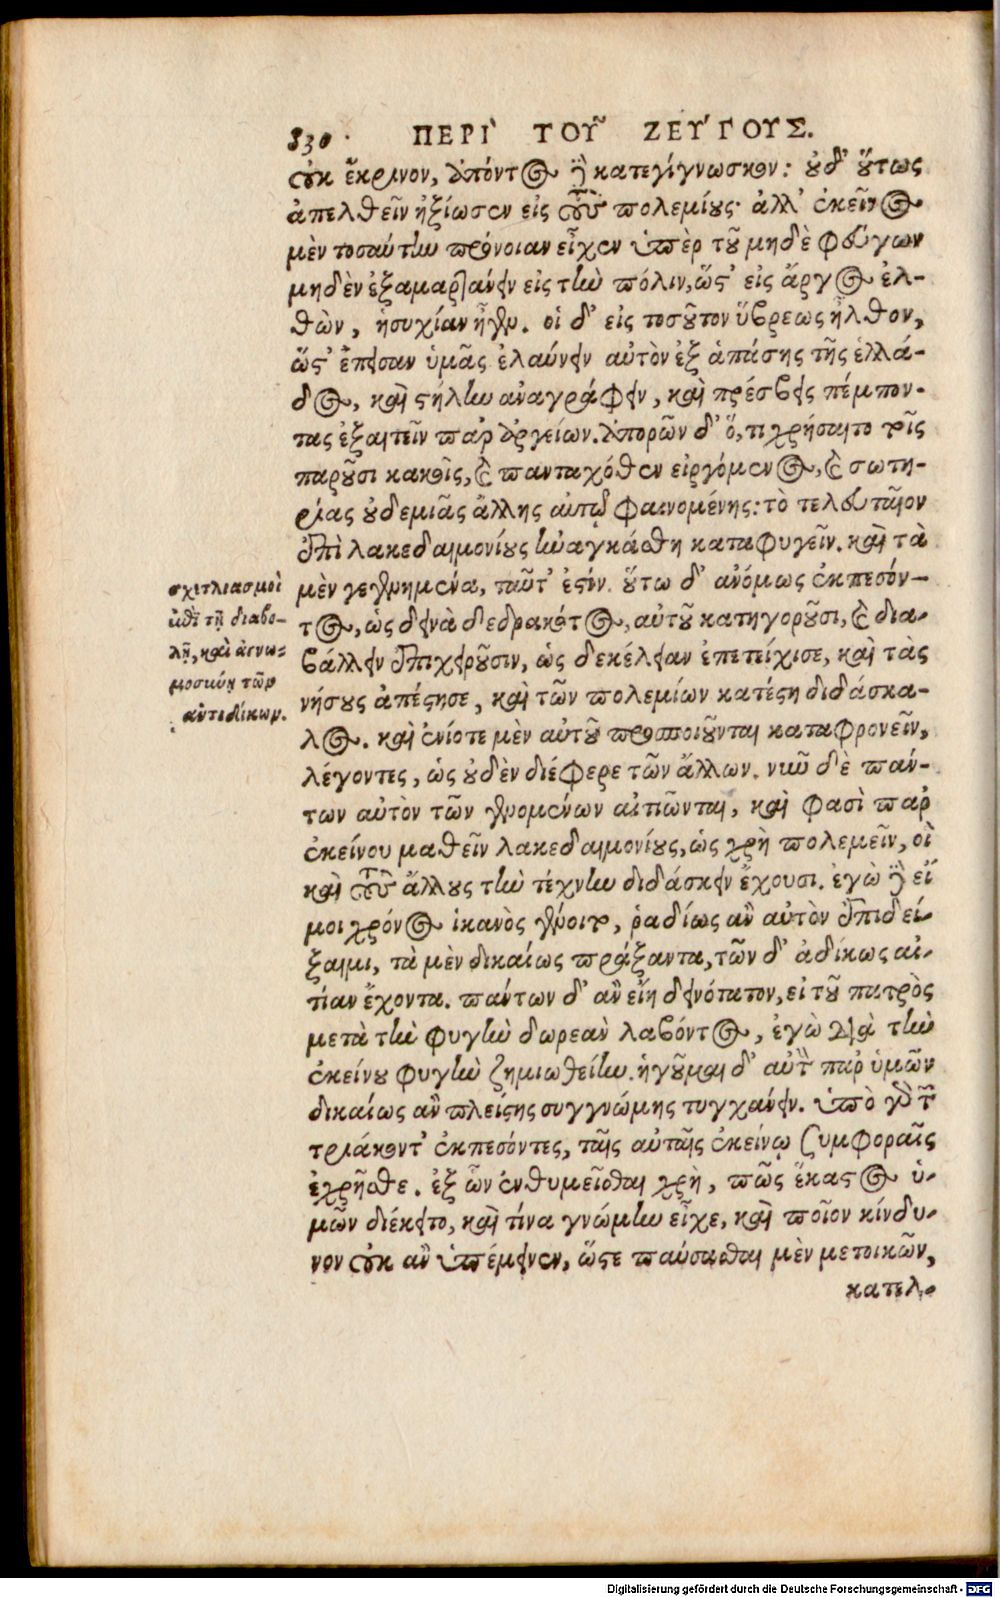 830. ΠΕΡΙ ΤΟΥ͂ ΖΕΥΓΟΥΣ.
οὐκ ἔκρινον, ἀπόντος δὲ κατεγίγνωσκον: οὐδ' οὕτως
ἀπελθεῖν ἠξίωσεν εἰς τοὺς πολεμίους· ἀλλ' ἐκεῖνος
μὲν τοσαύτην πρόνοιαν εἶχεν ὑπὲρ τοῦ μηδὲ φεύγων
μηδὲν ἐξαμαρτάνειν εἰς τὴν πόλιν, ὥστ' εἰς ἄργος ἐλ-
θὼν, ἡσυχίαν ἦγεν. οἱ δ' εἰς τοσοῦτον ὕβρεως ἦλθον,
ὥστ' ἔπεισαν ὑμᾶς ἐλαύνειν αὐτὸν ἐξ ἁπάσης τῆς ἑλλά-
δος, καὶ στήλην ἀναγράφειν, καὶ πρέσβεις πέμπον-
τας ἐξαιτεῖν παρ' ἀργείων. ἀπορῶν δ' ὅ,τι χρήσαιτο τοῖς
παροῦσι κακοῖς, καὶ πανταχόθεν εἰργόμενος, καὶ σωτη-
ρίας οὐδεμιᾶς ἄλλης αὐτῷ φαινομένης: τὸ τελευταῖον
ἐπὶ λακεδαιμονίους ἠναγκάσθη καταφυγεῖν. καὶ τὰ
μὲν γεγενημένα, ταῦτ' ἐστίν. οὕτω δ' ἀνόμως ἐκπεσόν-
τος, ὡς δεινὰ δεδρακότος, αὐτοῦ κατηγοροῦσι, καὶ δια-
βάλλειν ἐπιχειροῦσιν, ὡς δεκέλειαν ἐπετείχισε, καὶ τὰς
νήσους ἀπέστησε, καὶ τῶν πολεμίων κατέστη διδάσκα-
λος. καὶ ἐνίοτε μὲν αὐτοῦ προσποιοῦνται καταφρονεῖν,
λέγοντες, ὡς οὐδὲν διέφερε τῶν ἄλλων. νῦν δὲ πάν-
των αὐτὸν τῶν γενομένων αἰτιῶνται, καὶ φασὶ παρ'
ἐκείνου μαθεῖν λακεδαιμονίους, ὡς χρὴ πολεμεῖν, οἳ
καὶ τοὺς ἄλλους τὴν τέχνην διδάσκειν ἔχουσι. ἐγὼ δὲ εἴ
μοι χρόνος ἱκανὸς γένοιτο, ῥαδίως ἂν αὐτὸν ἐπιδεί-
ξαιμι, τὰ μὲν δικαίως πράξαντα, τῶν δ' ἀδίκως αἰ-
τίαν ἔχοντα. πάντων δ' ἂν εἴη δεινότατον, εἰ τοῦ πατρὸς
μετὰ τὴν φυγὴν δωρεὰν λαβόντος, ἐγὼ διὰ τὴν
ἐκείνου φυγὴν ζημιωθείην. ἡγοῦμαι δ' αὐτὸν παρ' ὑμῶν
δικαίως ἂν πλείστης συγγνώμης τυγχάνειν. ὑπὸ γὰρ τῶν
τριάκοντ' ἐκπεσόντες, ταῖς αὐταῖς ἐκείνῳ συμφοραῖς
ἐχρῆσθε. ἐξ ὧν ἐνθυμεῖσθαι χρὴ, πῶς ἕκαστος ὑ-
μῶν διέκειτο, καὶ τίνα γνώμην εἶχε, καὶ ποῖον κίνδυ-
νον οὐκ ἂν ὑπέμεινεν, ὥστε παύσασθαι μὲν μετοικῶν,
κατελ-
σχετλιασμοὶ
ἐπὶ τῇ διαβο-
λῇ, καὶ ἀγνω-
μοσύνῃ τῶν
ἀντιδίκων.
Digitalisierung gefördert durch die Deutsche Forschungsgemeinschaft - DFG